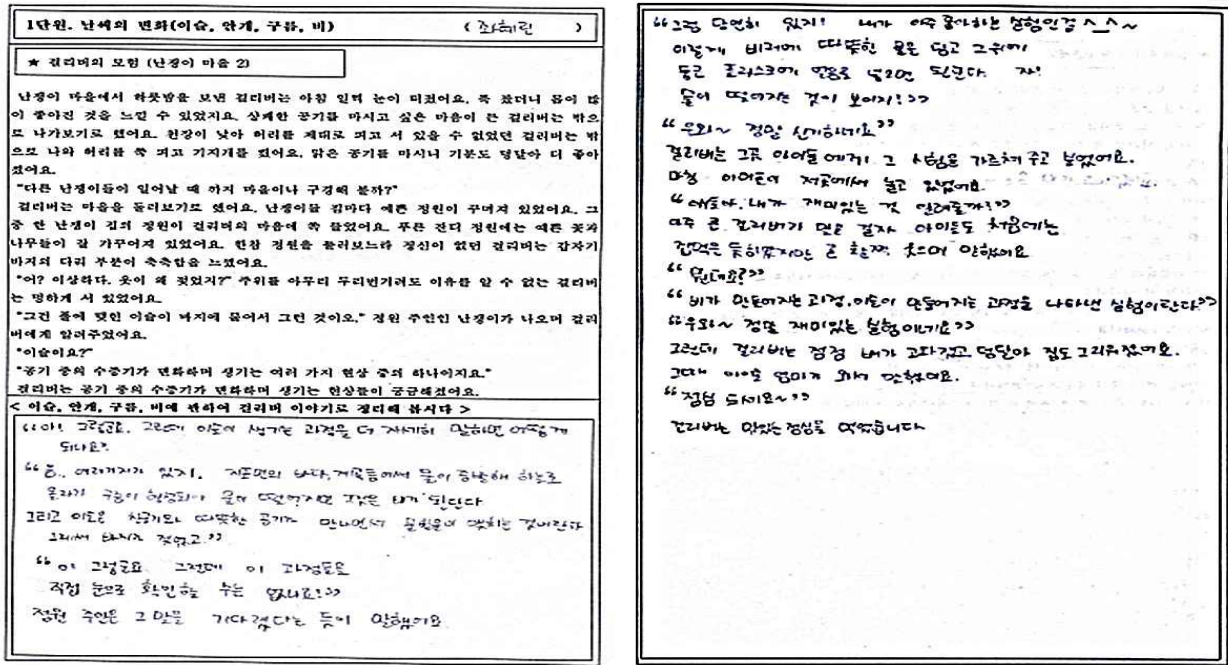 1단원. 날씨의 변화(이슬, 안개, 구름, 비) ( 좌혜린 )
★ 걸리버의 모험 (난쟁이 마을 2)
난쟁이 마을에서 하룻밤을 보낸 걸리버는 아침 일찍 눈이 떠졌어요. 푹 잤더니 몸이 많
이 좋아진 것을 느낄 수 있었지요. 상쾌한 공기를 마시고 싶은 마음이 든 걸리버는 밖으
로 나가보기로 했어요. 천장이 낮아 허리를 제대로 펴고 서 있을 수 없었던 걸리버는 밖
으로 나와 허리를 쭉 펴고 기지개를 켰어요. 맑은 공기를 마시니 기분도 덩달아 더 좋아
졌어요.
"다른 난쟁이들이 일어날 때 까지 마을이나 구경해 볼까?"
걸리버는 마을을 둘러보기로 했어요. 난쟁이들 집마다 예쁜 정원이 꾸며져 있었어요. 그
중 한 난쟁이 집의 정원이 걸리버의 마음에 쏙 들었어요. 푸른 잔디 정원에는 예쁜 꽃과
나무들이 잘 가꾸어져 있었어요. 한참 정원을 둘러보느라 정신이 없던 걸리버는 갑자기
바지의 다리 부분이 축축함을 느꼈어요.
"어? 이상하다. 옷이 왜 젖었지?" 주위를 아무리 두리번거려도 이유를 알 수 없는 걸리버
는 멍하게 서 있었어요.
"그건 풀에 맺힌 이슬이 바지에 묻어서 그런 것이오." 정원 주인인 난쟁이가 나오며 걸리
버에게 알려주었어요.
"이슬이요?"
"공기 중의 수증기가 변화하며 생기는 여러 가지 현상 중의 하나이지요."
걸리버는 공기 중의 수증기가 변화하며 생기는 현상들이 궁금해졌어요.
< 이슬, 안개, 구름, 비에 관하여 걸리버 이야기로 정리해 봅시다 >
"아! 그렇군요. 그런데 이슬이 생기는 과정을 더 자세히 말하면 어떻게
되나요?
"음.. 여러가지가 있지. 지표면의 바다, 계곡등에서 물이 증발해 하늘로
올라가 구름이 형성되어 물이 떨어지면 그것은 비가 된단다
그리고 이슬은 찬공기와 따뜻한 공기가 만나면서 물방울이 맺히는 것이란다
그래서 바지가 젖었고."
"아 그렇군요. 그런데 이 과정들을
직접 눈으로 확인하는 수는 없나요?"
정원 주인은 그 말을 기다렸다는 듯이 말했어요.
"그럼 당연히 있지! 내가 아주 좋아하는 실험인걸 ^_^~
이렇게 비커에 따뜻한 물을 담고 그위에
둥근 플라스크에 얼음을 넣으면 된단다. 자!
물이 떨어지는 것이 보이지?"
"우와~ 정말 신기하네요"
걸리버는 그곳 아이들에게 그 실험을 가르쳐 주고 싶었어요.
마침 아이들이 저곳에서 놀고 있었어요.
"얘들아, 내가 재미있는 것 알려줄까?"
아주 큰 걸리버가 말을 걸자 아이들도 처음에는
겁먹은 듯하였지만 곧 활짝 웃으며 말했어요
"뭔데요?"
"비가 만들어지는 과정, 이슬이 만들어지는 과정을 나타낸 실험이란다."
"우와~ 정말 재미있는 실험이네요"
그런데 걸리버는 점점 배가 고파졌고 덩달아 집도 그리워졌어요.
그때 이슬 엄마가 와서 말했어요.
"점심 드세요~"
걸리버는 맛있는 점심을 먹었습니다